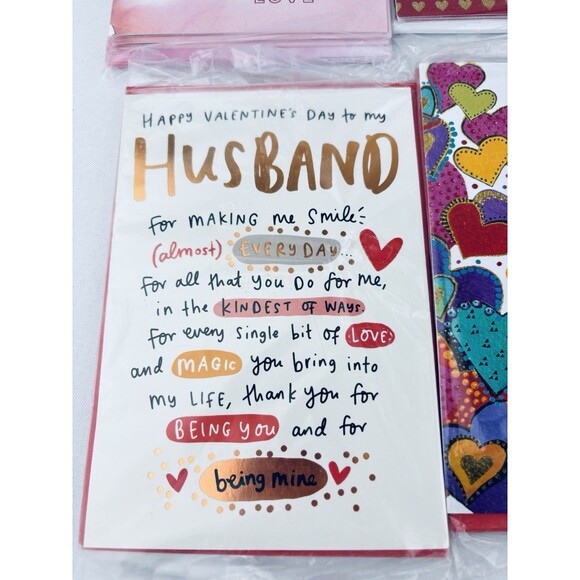 LOVE
HAPPY VALENTINE'S DAY to my
HUSBAND
for MAKING me Smile
(almost) EVERY DAY...
for all that you DO for me,
in the KINDEST OF WAYS.
for every single bit of LOVE
and MAGIC you bring into
my LIFE, thank you for
BEING YOU and for
being mine